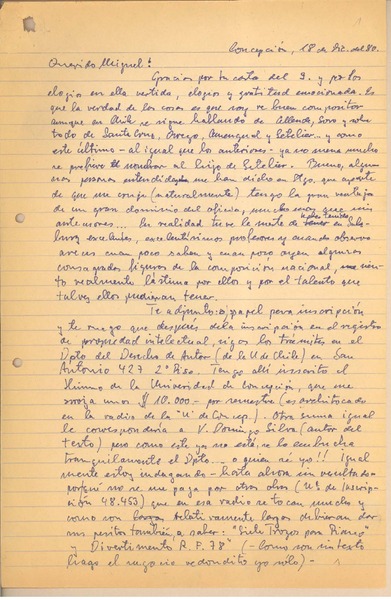 Concepción, 18 de Dic. del 80.
Querido Miguel:
Gracias por tu carta del 9. y por los
elogios en ella vertida, elogios y gratitud emocionada. Lo
que la verdad de las cosas es que soy re buen compositor
aunque en Chile se sigue hablando de Allende, Soro y sobre
todo de Santa Cruz, Orrego, Amengual y Letelier... y como
este último - al igual que los anteriores - ya no suena mucho
se prefiere nombrar al hijo de Letelier. Bueno, algu-
nas personas entendidas me han dicho en Stgo. que aparte
de que me cunde (naturalmente) tengo la gran ventaja
de un gran dominio del oficio, mucho mayor que mis
antecesores... En realidad tuve la suerte de haber tenido en Salz-
burg excelentes, excelentísimos profesores y cuando observo
a veces cuan poco saben y cuan poco oyen algunas
consagradas figuras de la composición nacional, sien-
to realmente lástima por ellos y por el talento que
tal vez ellos pudieran tener.
Te adjunto papel para inscripción
y te ruego que después de la inscripción en el registro
de propiedad intelectual, sigas los trámites en el
Dpto del Derecho de Autor (de la U. de Chile) en San
Antonio 427 2º Piso. Tengo allí inscrito el
Himno de la Universidad de Concepción, que me
arroja unos $ 10.000.- por semestre (es architocado
en la radio de la "U de Concep.). Otra suma igual
le correspondería a V. Domingo Silva (autor del
texto) pero como este ya no está, se lo embucha
tranquilamente el Dpto... o quien sé yo!! Igual
mente estoy indagando - hasta ahora sin resultado -
porqué no se me paga por otras obras (Nº de Inscrip-
sión 48.453) que en esa radio se tocan mucho y
como son relativamente largas debieran dar
mis pesitos también, a saber: "Siete Trozos para Piano"
y Divertimento R.F. 78" (- como son sin texto
hago el negocio redondito yo sólo) -